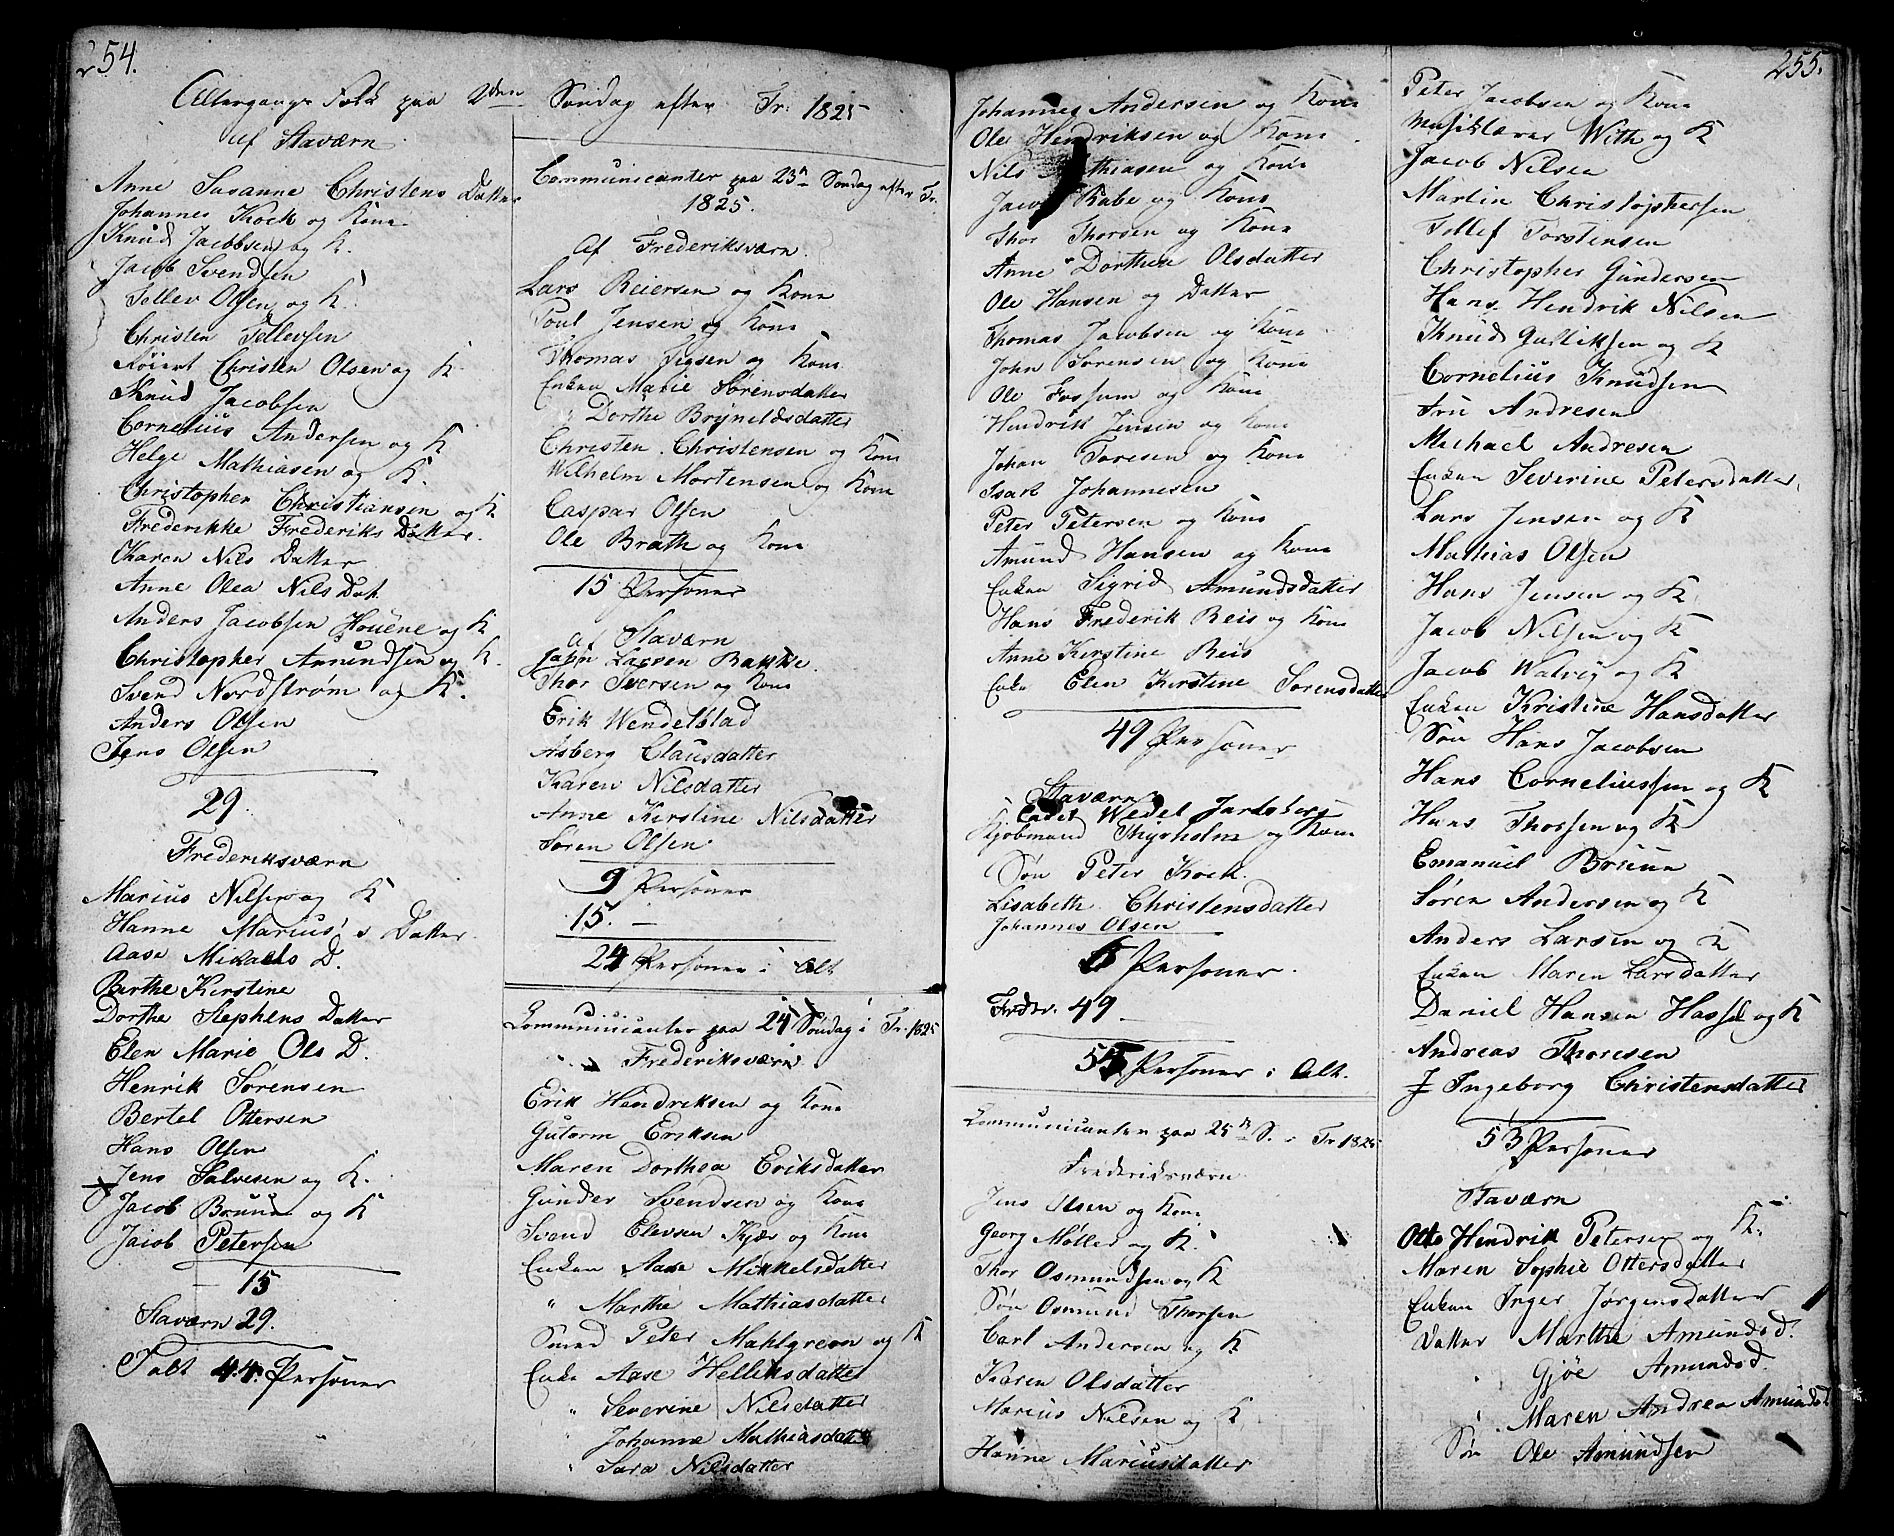 254.
Altergangs Folk paa 2den Søndag efter Tr: 1825
af Staværn
Anne Susanne Christens Datter
Johannes Kock og Kone
Knud Jacobsen og K.
Jacob Svendsen
Tellev Olsen og K.
Christen Tellevsen
Christen Olsen og K.
Knud Jacobsen
Cornelius Andersen og K
Helge Mathiasen og K.
Christopher Christiansen og K
Frederikke Frederiks Datter.
Karen Nils Datter
Anne Olea Nils Dat.
Anders Jacobsen Houene og K
Christopher Amundsen og K.
Svend Nordstrøm og K.
Anders Olsen
Jens Olsen
29.
Frederiksværn
Marius Nilsen og K
Hanne Marius's Datter
Aase Michaels D.
Berthe Kirstine
Dorthe Stephens Datter
Elen Marie Ols D.
Henrik Sørensen
Bertel Ottersen
Hans Olsen
Jens Halvesen og K.
Jacob Bruun og K
Jacob Petersen
15
Staværn 29.
Talt 44. Personer
Communicanter paa 23n Søndag efter Tr.
1825.
Af Frederiksværn.
Lars Reiersen og Kone
Poul Jensen og Kone
Thomas Jensen og Kone
Enken Marie Sørensdatter
" Dorthe Brynildsdatter
Christen Christensen og Kone
Wilhelm Mortensen og Kone
Caspar Olsen
Ole Brath og Kone
15 Personer
af Staværn
John Larsen Bakke.
Thor Iversen og Kone
Erik Wendelblad
Asberg Clausdatter
Karen Nilsdatter
Anne Kirstine Nilsdatter
Søren Olsen
9 Personer
15. —
24 Personer i Alt
Communicanter paa 24 Søndag i Tr. 1825
Frederiksværn
Erik Hendriksen og Kone
Gutorm Eriksen
Maren Dorthea Eriksdatter
Gunder Svendsen og Kone
Svend Elevsen Kjær og Kone
Enken Aase Mikkelsdatter
" Marthe Mathiasdatter
Smed Peter Mahlgreen og K
Enke Aase Helliksdatter
" Severine Nilsdatter
" Johanne Mathiasdatter
" Sara Nilsdatter
Johannes Andersen og Kone
Ole Hendriksen og Kone
Nils Mathiasen og Kone
Jacob Rabe og Kone
Thor Thorsen og Kone
Anne Dorthea Olsdatter
Ole Hansen og Datter
Thomas Jacobsen og Kone
John Sørensen og Kone
Ole Fossum og Kone
Hendrik Jensen og Kone
Johan Toresen og Kone
Isak Johannesen
Peter Petersen og Kone
Amund Hansen og Kone
Enken Sigrid Amundsdatter
Hans Frederik Reis og Kone
Anne Kirstine Reis
Enke Elen Kirstine Sørensdatter
49 Personer
Staværn
Cadet Wedel Jarlsberg
Kjøbmand Thyrholm og Kone
Søn Peter Kock.
Lisabeth Christensdatter
Johannes Olsen
6 Personer.
Frdv. 49
55 Personer i Alt.
Communicanter paa 25de S. i Tr 1825
Frederiksværn
Jens Olsen og Kone
Georg Møller og K.
Thor Osmundsen og K
Søn Osmund Thorsen
Carl Andersen og K.
Karen Olsdatter
Marius Nilsen og K
Hanne Mariusdatter
255.
Peter Jacobsen og Kone
Musiklærer With og K
Jacob Nilsen
Martin Christophersen
Tellef Torstensen
Christopher Gundersen
Hans Hendrik Nilsen
Knud Gulliksen og K
Cornelius Knudsen
Fru Andresen
Michael Andresen
Enken Severine Petersdatter
Lars Jensen og K
Mathias Olsen
Hans Jensen og K
Jacob Nilsen og K
Jacob Walvig og K
Enken Kristine Hansdatter
Søn Hans Jacobsen
Hans Corneliussen og K
Hans Thorsen og K
Emanuel Bruun
Søren Andersen og K
Anders Larsen og K
Enken Maren Larsdatter
Daniel Hansen Hassel og K
Andreas Thoresen
J Ingeborg Christensdatter
53 Personer
Staværn
Otto Hendrik Petersen og K.
Maren Sophie Ottersdatter
Enken Inger Jørgensdatter
Datter Marthe Amundsd.
" Gjøe Amundsd.
" Maren Andrea Amundsd
Søn Ole Amundsen